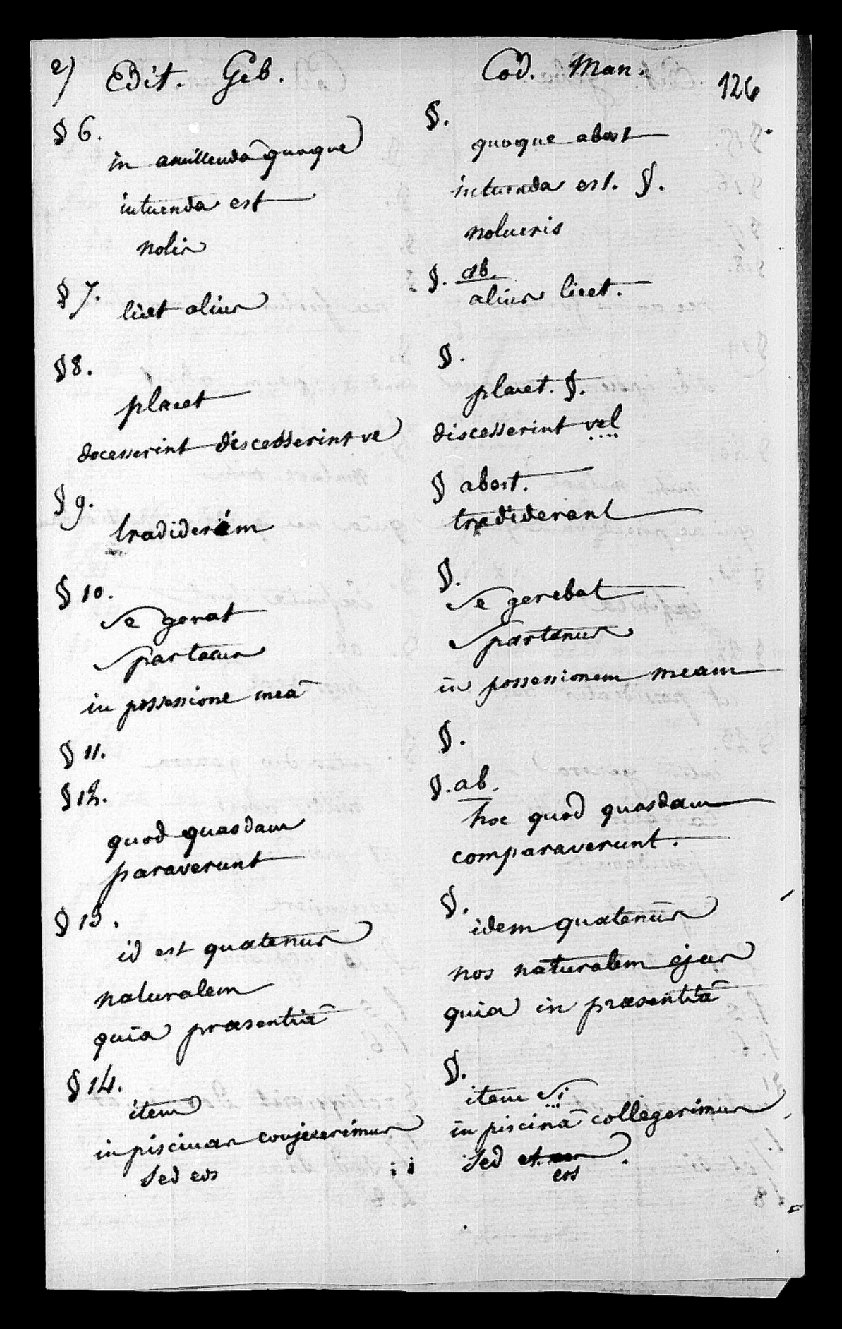 2) Edit. Geb. Cod. Man. 126
§ 6. §.
in amittenda quoque quoque abest
intuenda est intuenda est. §.
nolis nolueris
§ 7. §. ab.
licet alius alius licet.
§ 8. §.
placet placet. §.
decesserint discesserint ve discesserint vel
§ 9. § abest.
tradiderim tradiderant
§ 10. §.
se gerat se gerebat
partenus
in possessione meâ in possessionem meam
§ 11. §.
§ 12. §. ab.
quod quasdam hoc quod quasdam
paraverunt comparaverunt.
§ 13. §.
id est quatenus idem quatenus
naturalem nos naturalem ejus
quia præsentiâ quia in præsentiâ
§ 14. §.
item item si
in piscinas conjecerimus in piscinâ collegerimus
sed eos sed et
eos